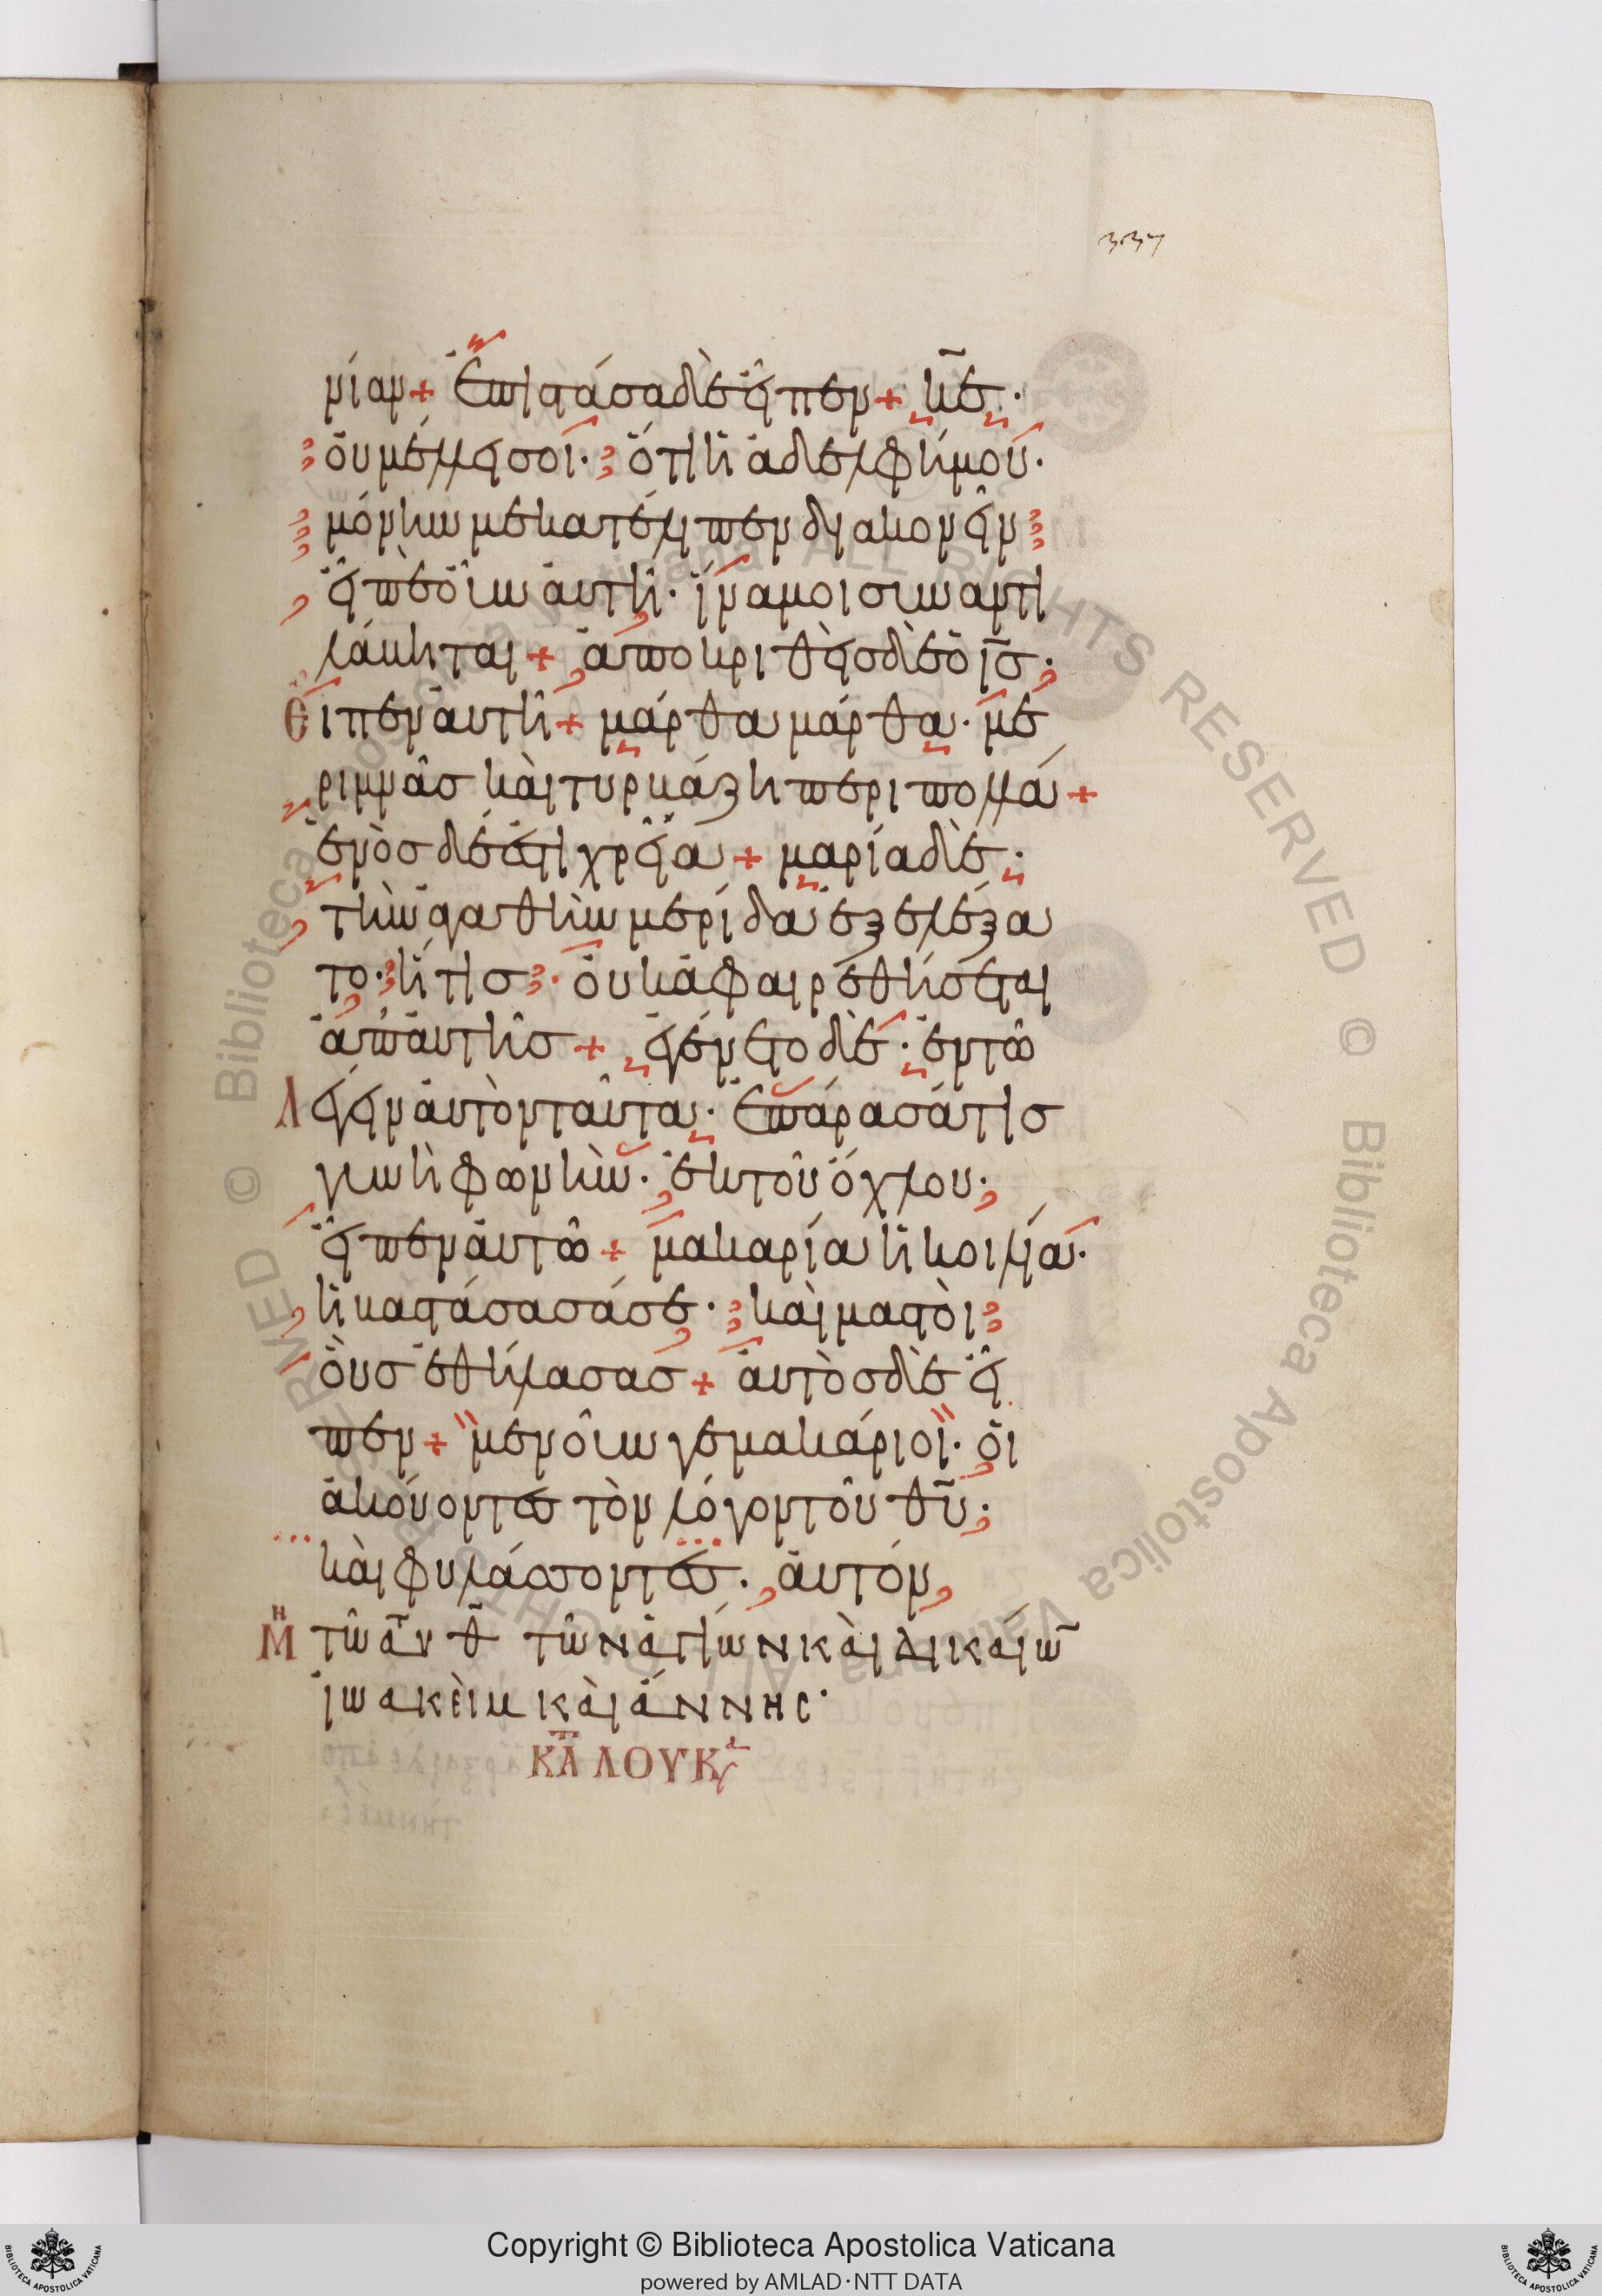 337
νίαν + ἐπιστάσα δὲ εἶπεν + κ̅ε̅·
οὐ μέλλει σοι· ὅτι ἡ ἀδελφή μου·
μόνην με κατέλιπεν διακονεῖν
εἰπὲ οὖν αὐτῇ· ἵνα μοι συναντι
λάβηται + ἀποκριθεὶς δὲ ὁ ι̅ς̅·
Εἶπεν αὐτῇ + μάρθα μάρθα· με
ριμνᾷς καὶ τυρβάζῃ περὶ πολλά +
ἑνὸς δέ ἐστι χρεία + μαρία δὲ·
τὴν ἀγαθὴν μερίδα ἐξελέξα
το· ἥτις· οὐκ ἀφαιρεθήσεται
ἀπ' αὐτῆς + ἐγένετο δὲ· ἐν τῷ
Λέγειν αὐτὸν ταῦτα· ἐπάρασά τις
γυνὴ φωνὴν· ἐκ τοῦ ὄχλου·
εἶπεν αὐτῷ + μακαρία ἡ κοιλία·
ἡ βαστάσασά σε· καὶ μαστοὶ
οὓς ἐθήλασας + αὐτὸς δὲ εἶ
πεν + μενοῦν γε μακάριοι· οἱ
ἀκούοντες τὸν λόγον τοῦ θ̅υ̅·
καὶ φυλάσσοντες· αὐτόν
Μη τῷ αν θ τῶν ἁγίων καὶ δικαίω̅
ἰωακεὶμ καὶ ἄννης·
Κατ ΛΟΥΚ
Copyright © Biblioteca Apostolica Vaticana
powered by AMLAD·NTT DATA